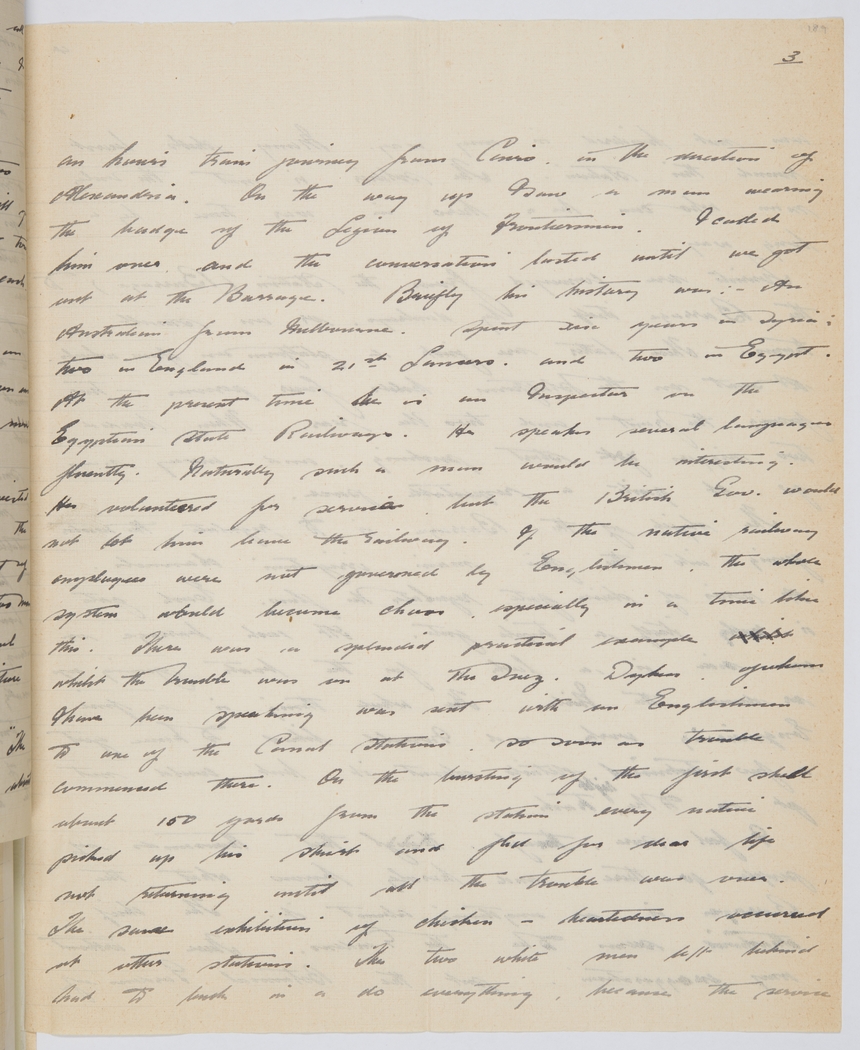 3
an hours train journey from Cairo. in the direction of
Alexandria. On the way up I saw a man wearing
the badge of the Legion of Frontiersmen. I called
him over. and the conversation lasted until we got
out at the Barrage. Briefly his history was :- An
Australian from Melbourne. spent six years in Syria:
two in England in 21st Lancers. and two in Egypt.
At the present time he is an Inspector on the
Egyptian State Railways. He speaks several languages
fluently. Naturally such a man would be interesting.
He volunteered for service. but the British Gov. would
not let him leave the Railway. If the native railway
employees were not governed by Englishmen. the whole
system would become chaos. especially in a time like
this. There was a splendid practical example
whilst the trouble was on at the Suez. of whom
I have been speaking was sent with an Englishman
to one of the Canal stations. so soon as trouble
commenced there. On the bursting of the first shell
about 150 yards from the station every native
picked up his skirt and fled for dear life
not returning until all the trouble was over.
The same exhibition of chicken-heartedness occurred
at other stations. The two white men left behind
had to buck in & do everything, because the service